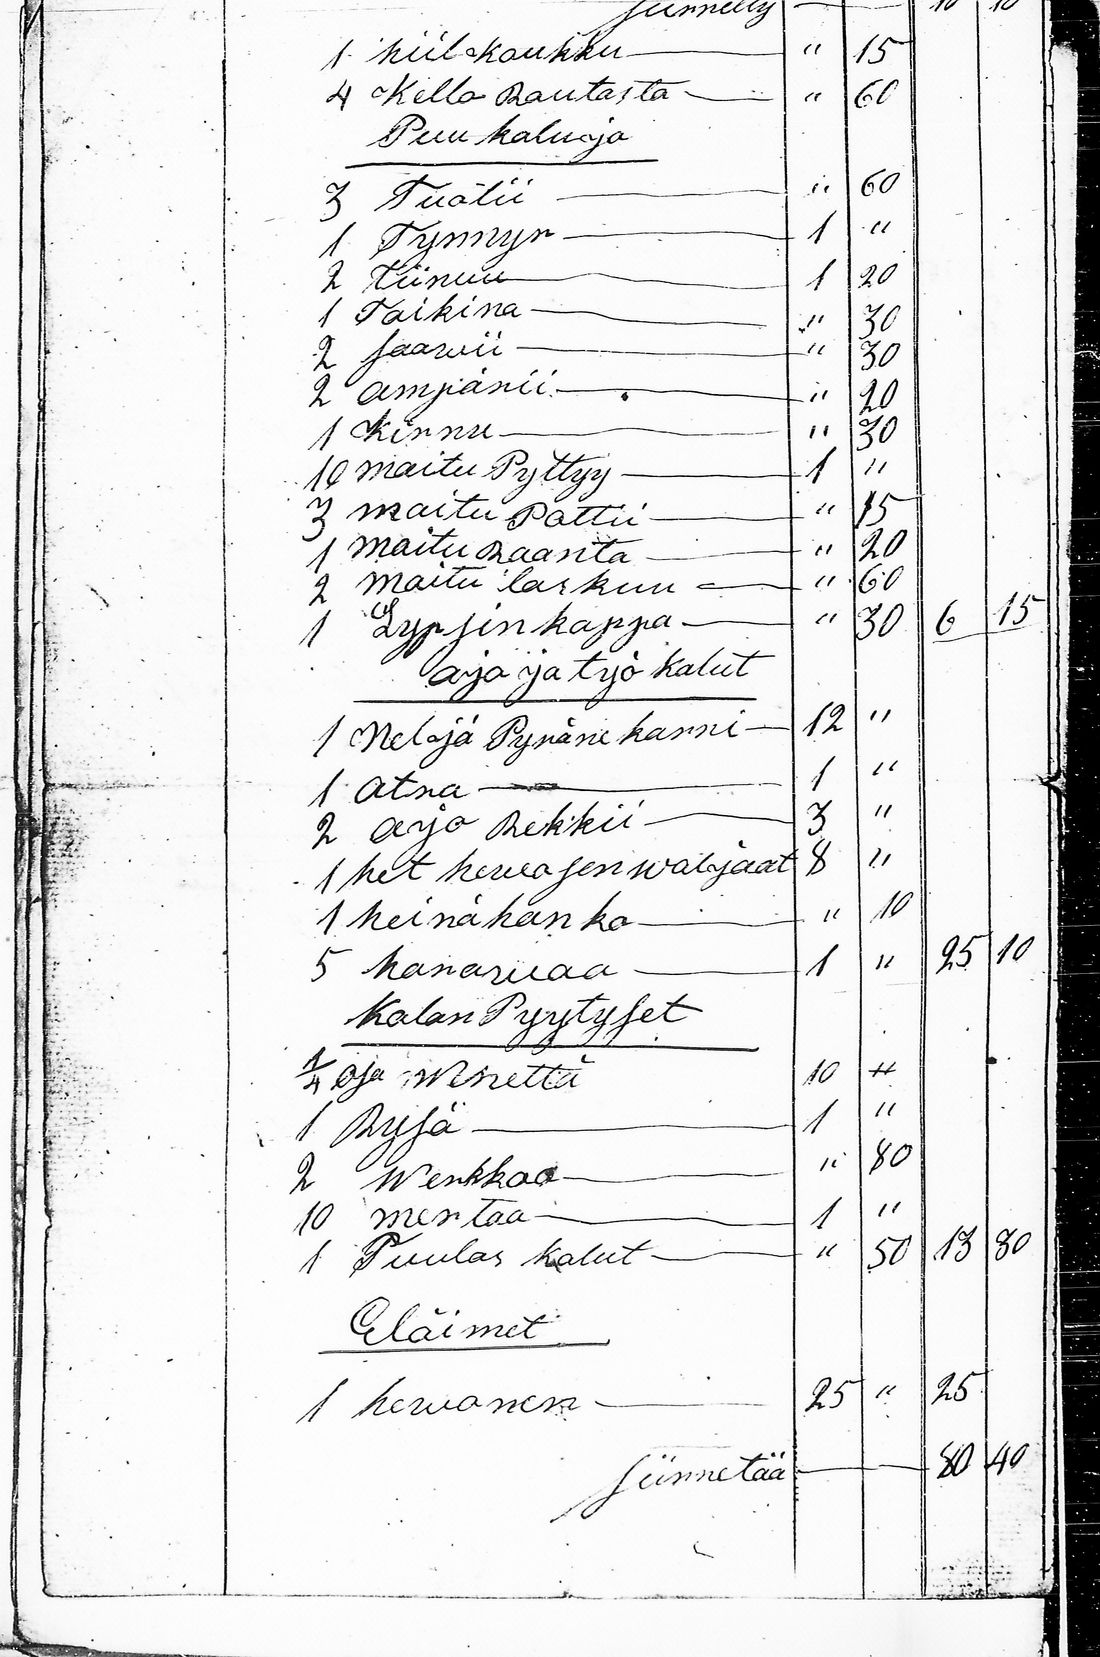 Siirretty — 10 10
1 hiil koukku — " 15
4 Kello Rautasta — " 60
Puu kaluja
3 Tuolii — " 60
1 Tynnyr — 1 "
2 tiinuu — 1 20
1 Taikina — " 30
2 saavii — " 30
2 ampärii — " 20
1 Kirnu — " 30
10 maitu Pyttyy — 1 "
3 maitu Pottii — " 15
1 maitu Raanta — " 20
2 maitu laskuu — " 60
1 Lypsin kappa — " 30 6 15
ajo ja työ kalut
1 Neljä Pyräne karri — 12 "
1 atra — 1 "
2 ajo Rekkii — 3 "
1 het hevosen waljaat 8 "
1 heinähanko — " 10
5 haravaa — 1 " 25 10
Kalan Pyytyset
1/4 osa Winettä 10 "
1 Rysä — 1 "
2 Werkkoo — " 80
10 mertaa — 1 "
1 Puulas kalut — " 50 13 30
Eläimet
1 hevonen — 25 " 25
Siirretää — 80 40